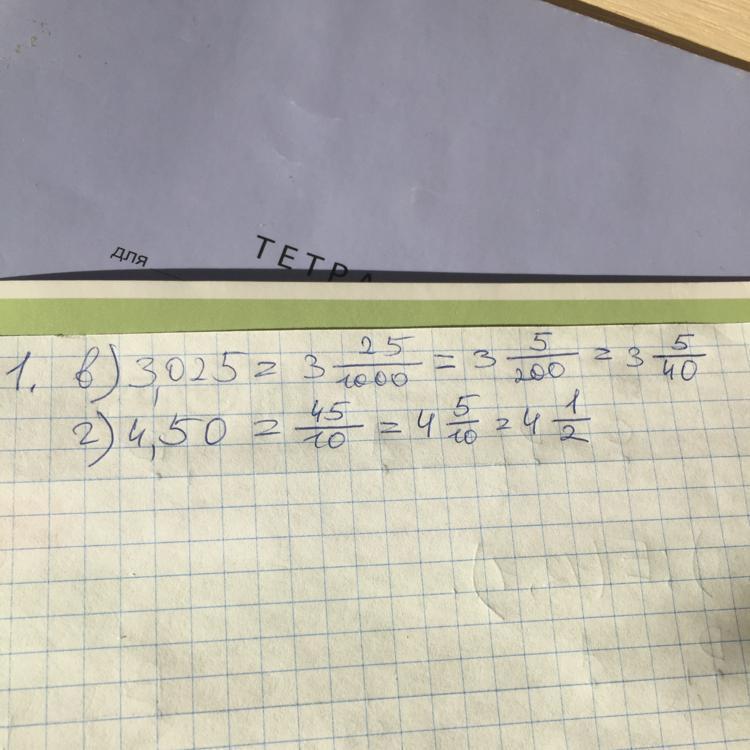 для
ТЕТРА
1. в) 3,025 = 3 25/1000 = 3 5/200 = 3 5/40
г) 4,50 = 45/10 = 4 5/10 = 4 1/2